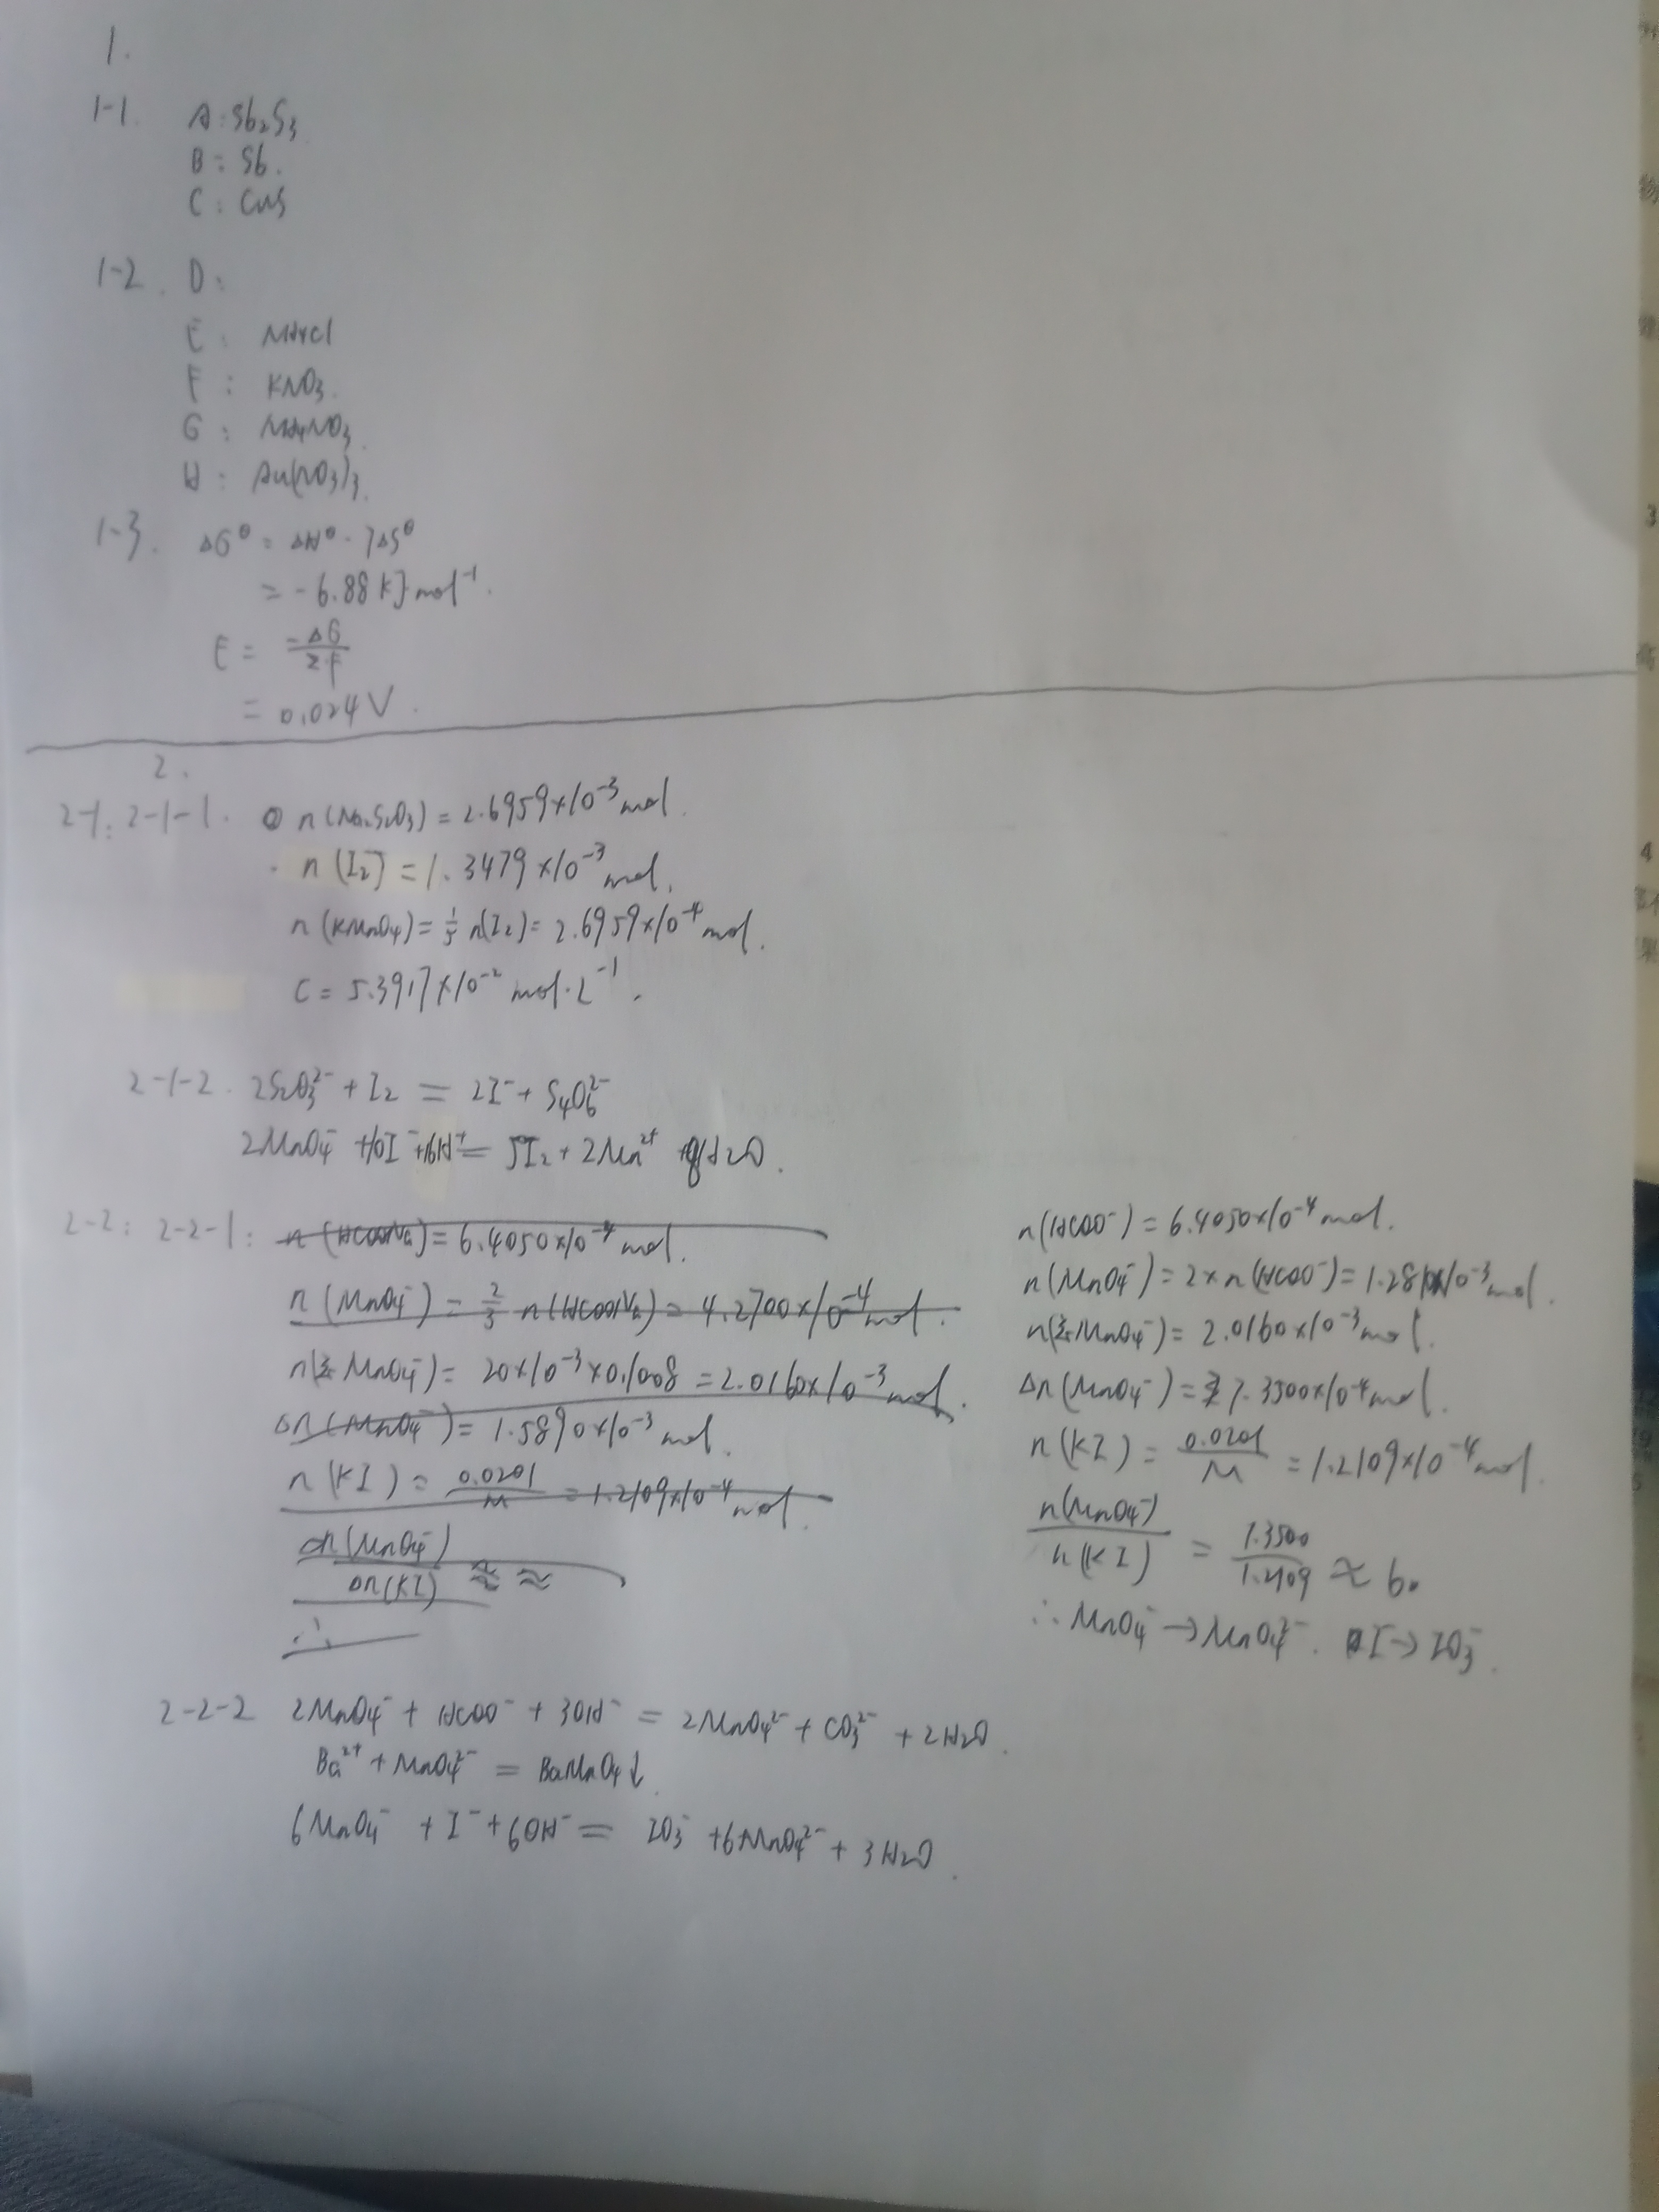 1.
1-1. A: Sb₂S₃
B: Sb.
C: CuS
1-2. D:
E: NH₄Cl
F: KNO₃.
G: NH₄NO₃.
H: Au(NO₃)₃.
1-3. ΔG^θ = ΔH^θ - TΔS^θ
= -6.88 kJ mol⁻¹.
E = -ΔG/zF
= 0.024 V.
2.
2-1: 2-1-1. n(Na₂S₂O₃) = 2.6959×10⁻³ mol.
n(I₂) = 1.3479×10⁻³ mol.
n(KMnO₄) = 1/5 n(I₂) = 2.6959×10⁻⁴ mol.
C = 5.3917×10⁻² mol·L⁻¹.
2-1-2. 2S₂O₃²⁻ + I₂ = 2I⁻ + S₄O₆²⁻
2MnO₄⁻ + 10I⁻ + 16H⁺ = 5I₂ + 2Mn²⁺ + 8H₂O.
2-2: 2-2-1: n(HCOONa) = 6.4050×10⁻⁴ mol.
n(MnO₄⁻) = 2/3 n(HCOONa) = 4.2700×10⁻⁴ mol.
n(总MnO₄⁻) = 20×10⁻³×0.1008 = 2.0160×10⁻³ mol.
Δn(MnO₄⁻) = 1.5890×10⁻³ mol.
n(KI) = 0.0201/M = 1.2109×10⁻⁴ mol.
Δn(MnO₄⁻)/Δn(KI) ≈ ≈
∴
n(HCOO⁻) = 6.4050×10⁻⁴ mol.
n(MnO₄⁻) = 2×n(HCOO⁻) = 1.2810×10⁻³ mol.
n(总MnO₄⁻) = 2.0160×10⁻³ mol.
Δn(MnO₄⁻) = 7.3500×10⁻⁴ mol.
n(KI) = 0.0201/M = 1.2109×10⁻⁴ mol.
n(MnO₄⁻)/n(KI) = 7.3500/1.2109 ≈ 6.
∴ MnO₄⁻ → MnO₄²⁻. I⁻ → IO₃⁻.
2-2-2 2MnO₄⁻ + HCOO⁻ + 3OH⁻ = 2MnO₄²⁻ + CO₃²⁻ + 2H₂O.
Ba²⁺ + MnO₄²⁻ = BaMnO₄↓.
6MnO₄⁻ + I⁻ + 6OH⁻ = IO₃⁻ + 6MnO₄²⁻ + 3H₂O.